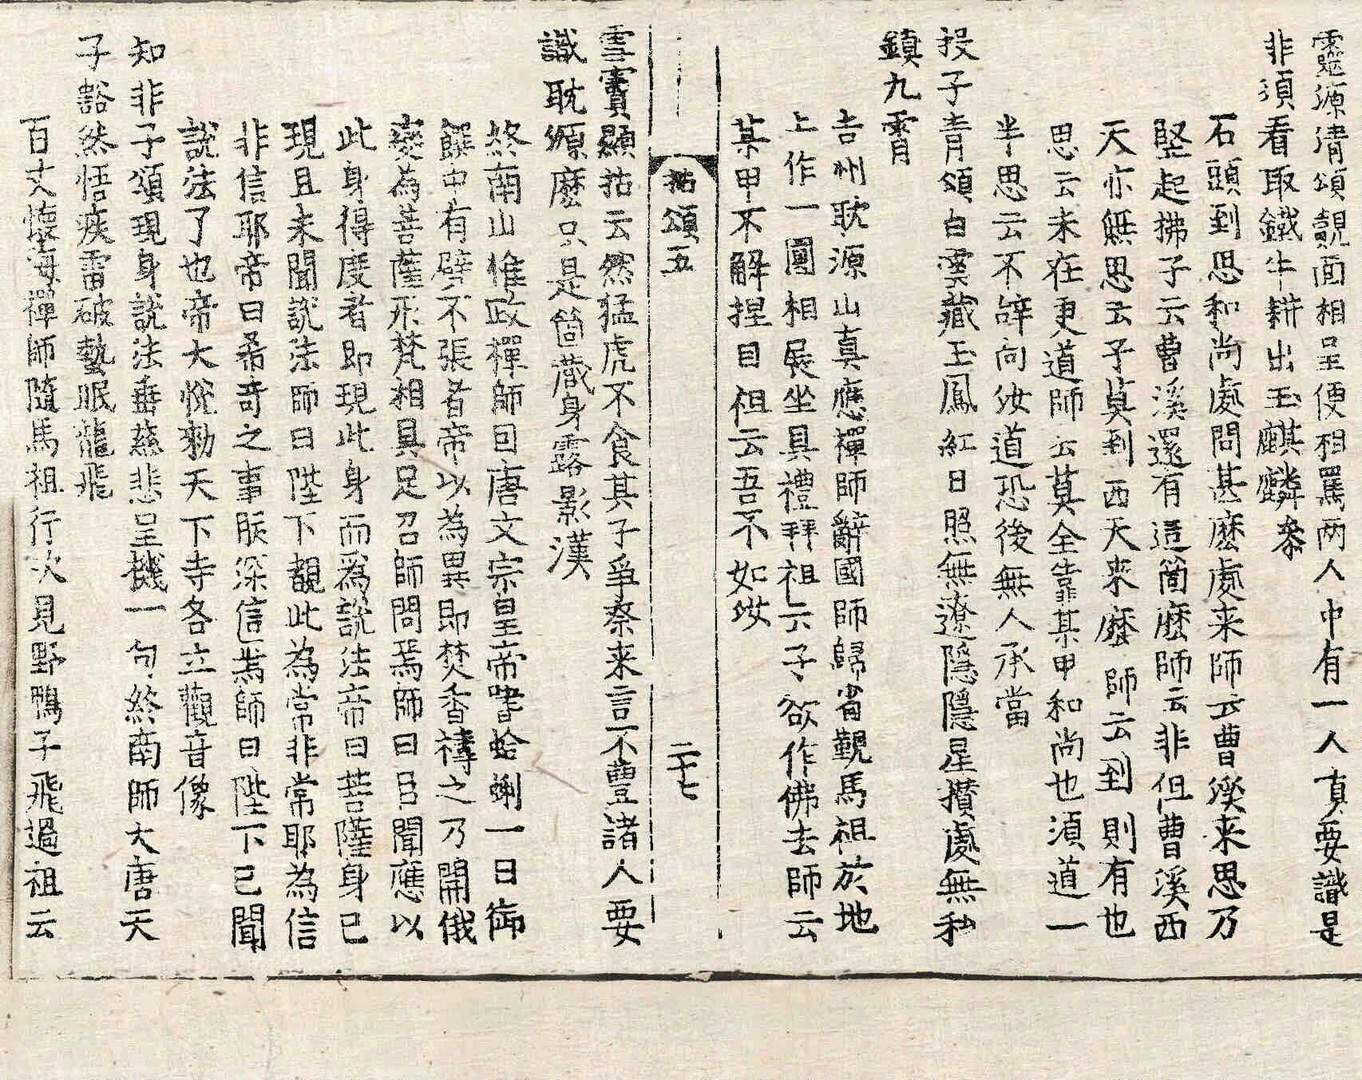 靈源清頌覿面相呈便相罵两人中有一人真要識是
非須看取鐵牛耕出玉麒麟叅
石頭到思和尚處問甚麽處来師云曹溪来思乃
竪起拂子云曹溪還有這箇麽師云非但曹溪西
天亦無思云子莫到西天来麽師云到則有也
思云未在更道師云莫全靠某甲和尚也須道一
半思云不辝向汝道恐後無人承當
投子青頌白雲藏玉鳳紅日照無遼隱隱星攅處無私
鎮九霄
吉州耽源山真應禪師辭國師歸省覲馬祖於地
上作一圓相展坐具禮拜祖云子欲作佛去師云
某甲不解揑目祖云吾不如汝
拈頌五
二十七
雪竇顯拈云然猛虎不食其子爭奈来言不豊諸人要
識耽源麽只是箇藏身露影漢
終南山惟政禪師回唐文宗皇帝嗜蛤蜊一日御
饌中有擘不張者帝以為異即焚香禱之乃開俄
變為菩薩形梵相具足召師問焉師曰臣聞應以
此身得度者即現此身而爲說法帝曰菩薩身已
現且未聞說法師曰陛下覩此為常非常耶為信
非信耶帝曰希奇之事朕深信焉師曰陛下已聞
說法了也帝大悅勑天下寺各立觀音像
知非子頌現身說法垂慈悲呈機一句終南師大唐天
子豁然悟疾雷破蟄眠龍飛
百丈懷海禪師隨馬祖行次見野鴨子飛過祖云